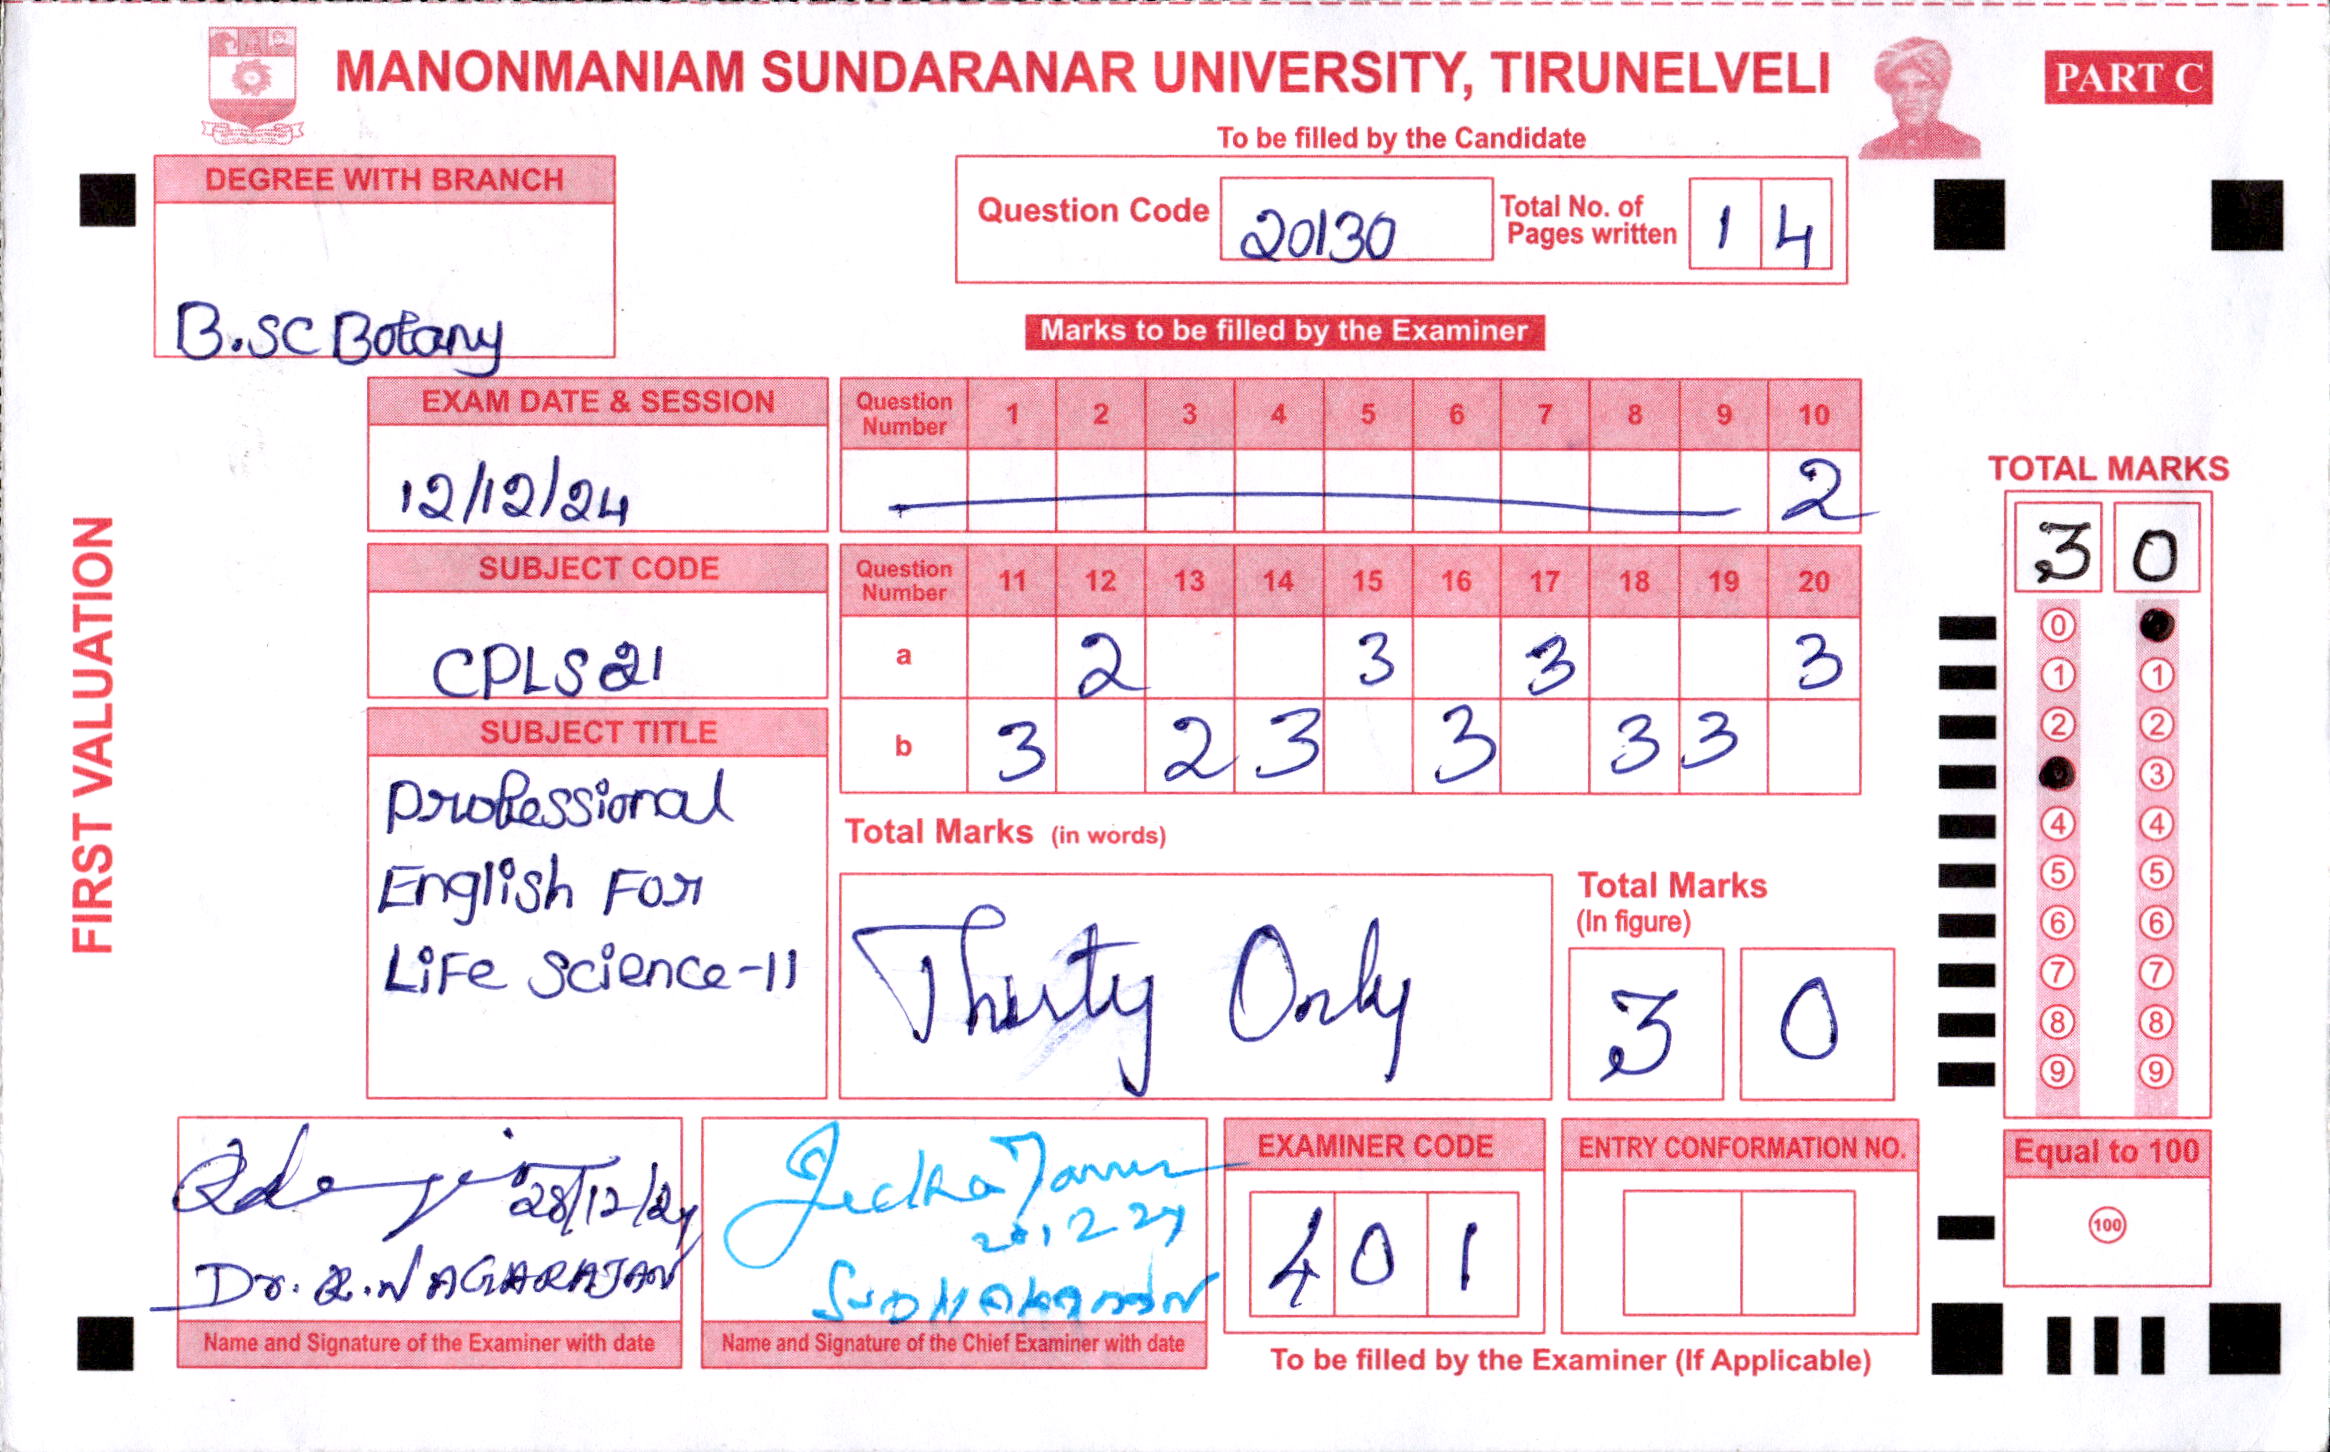 MANONMANIAM SUNDARANAR UNIVERSITY, TIRUNELVELI
PART C
To be filled by the Candidate
DEGREE WITH BRANCH
B.SC Botany
Question Code 20130 Total No. of Pages written 1 4
Marks to be filled by the Examiner
FIRST VALUATION
EXAM DATE & SESSION
12/12/24
SUBJECT CODE
CPLS21
SUBJECT TITLE
Professional
English For
Life Science-II
Question Number 1 2 3 4 5 6 7 8 9 10
2
Question Number 11 12 13 14 15 16 17 18 19 20
a 2 3 3 3
b 3 2 3 3 3 3
Total Marks (in words)
Thirty Only
Total Marks
(In figure)
3 0
TOTAL MARKS
3 0
0
1 1
2 2
3
4 4
5 5
6 6
7 7
8 8
9 9
Equal to 100
100
28/12/24
Dr. R. NAGARAJAN
Name and Signature of the Examiner with date
Name and Signature of the Chief Examiner with date
EXAMINER CODE
4 0 1
ENTRY CONFORMATION NO.
To be filled by the Examiner (If Applicable)